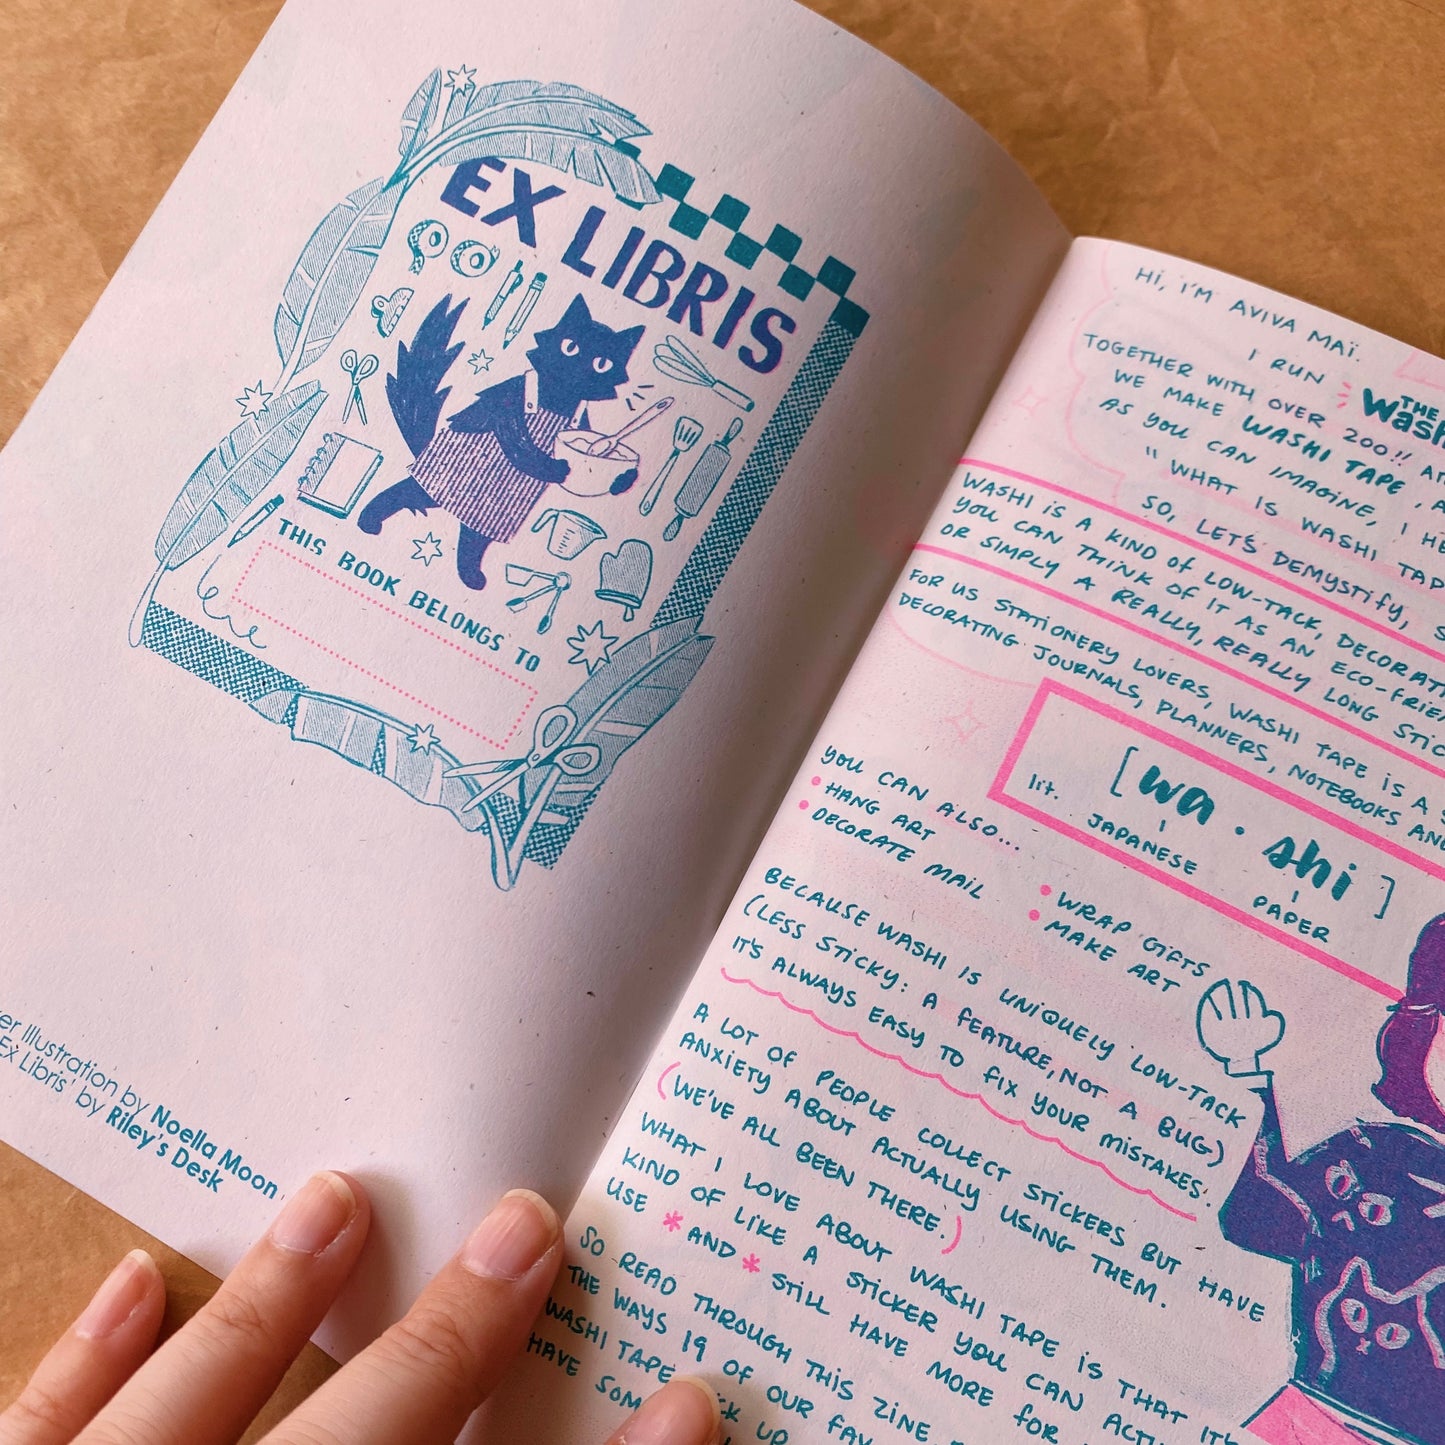 EX LIBRIS
THIS BOOK BELONGS TO
Illustration by Noella Moon
'Ex Libris' by Riley's Desk
HI, I'M AVIVA MAÏ.
I RUN THE
TOGETHER WITH OVER 200!!
WE MAKE WASHI TAPE,
AS YOU CAN IMAGINE, I
"WHAT IS WASHI
SO, LET'S DEMYSTIFY,
WASHI IS A KIND OF LOW-TACK,
YOU CAN THINK OF IT AS AN
OR SIMPLY A REALLY, REALLY LONG
FOR US STATIONERY LOVERS, WASHI TAPE IS A
DECORATING JOURNALS, PLANNERS, NOTEBOOKS
[wa · shi]
lit. JAPANESE PAPER
YOU CAN ALSO...
• HANG ART
• DECORATE MAIL
• WRAP GIFTS
• MAKE ART
BECAUSE WASHI IS UNIQUELY LOW-TACK
(LESS STICKY: A FEATURE, NOT A BUG)
IT'S ALWAYS EASY TO FIX YOUR MISTAKES.
A LOT OF PEOPLE COLLECT STICKERS BUT HAVE
ANXIETY ABOUT ACTUALLY USING THEM.
(WE'VE ALL BEEN THERE.)
WHAT I LOVE ABOUT WASHI TAPE IS THAT IT'S
KIND OF LIKE A STICKER YOU CAN
USE *AND* STILL HAVE MORE FOR
SO READ THROUGH THIS ZINE
THE WAYS 19 OF OUR
WASHI TAPE UP
HAVE